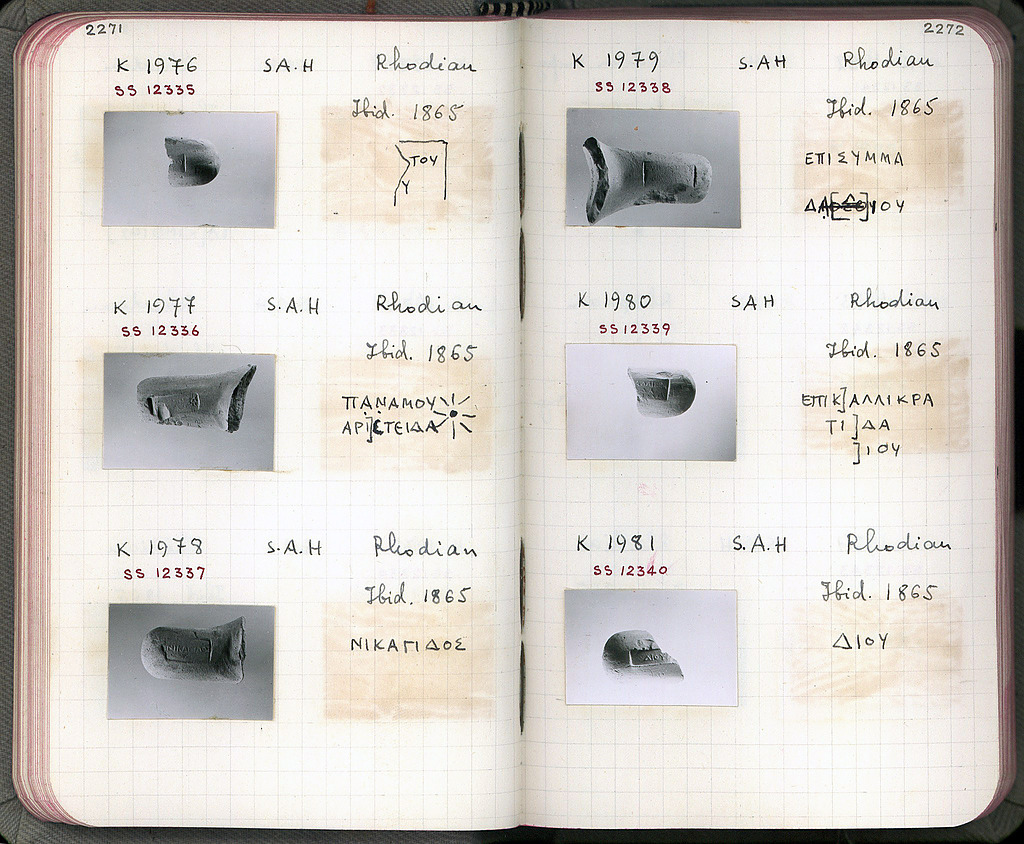 2271
K 1976 S.A.H Rhodian
SS 12335
Ibid. 1865
ΤΟΥ
Υ
K 1977 S.A.H Rhodian
SS 12336
Ibid. 1865
ΠΑΝΑΜΟΥ
ΑΡΙ]ΣΤΕΙΔΑ
K 1978 S.A.H Rhodian
SS 12337
Ibid. 1865
ΝΙΚΑΓΙΔΟΣ
2272
K 1979 S.AH Rhodian
SS 12338
Ibid. 1865
ΕΠΙΣΥΜΜΑ
K 1980 SAH Rhodian
SS 12339
Ibid. 1865
ΕΠΙΚ]ΑΛΛΙΚΡΑ
ΤΙ]ΔΑ
]ΙΟΥ
K 1981 S.A.H Rhodian
SS 12340
Ibid. 1865
ΔΙΟΥ